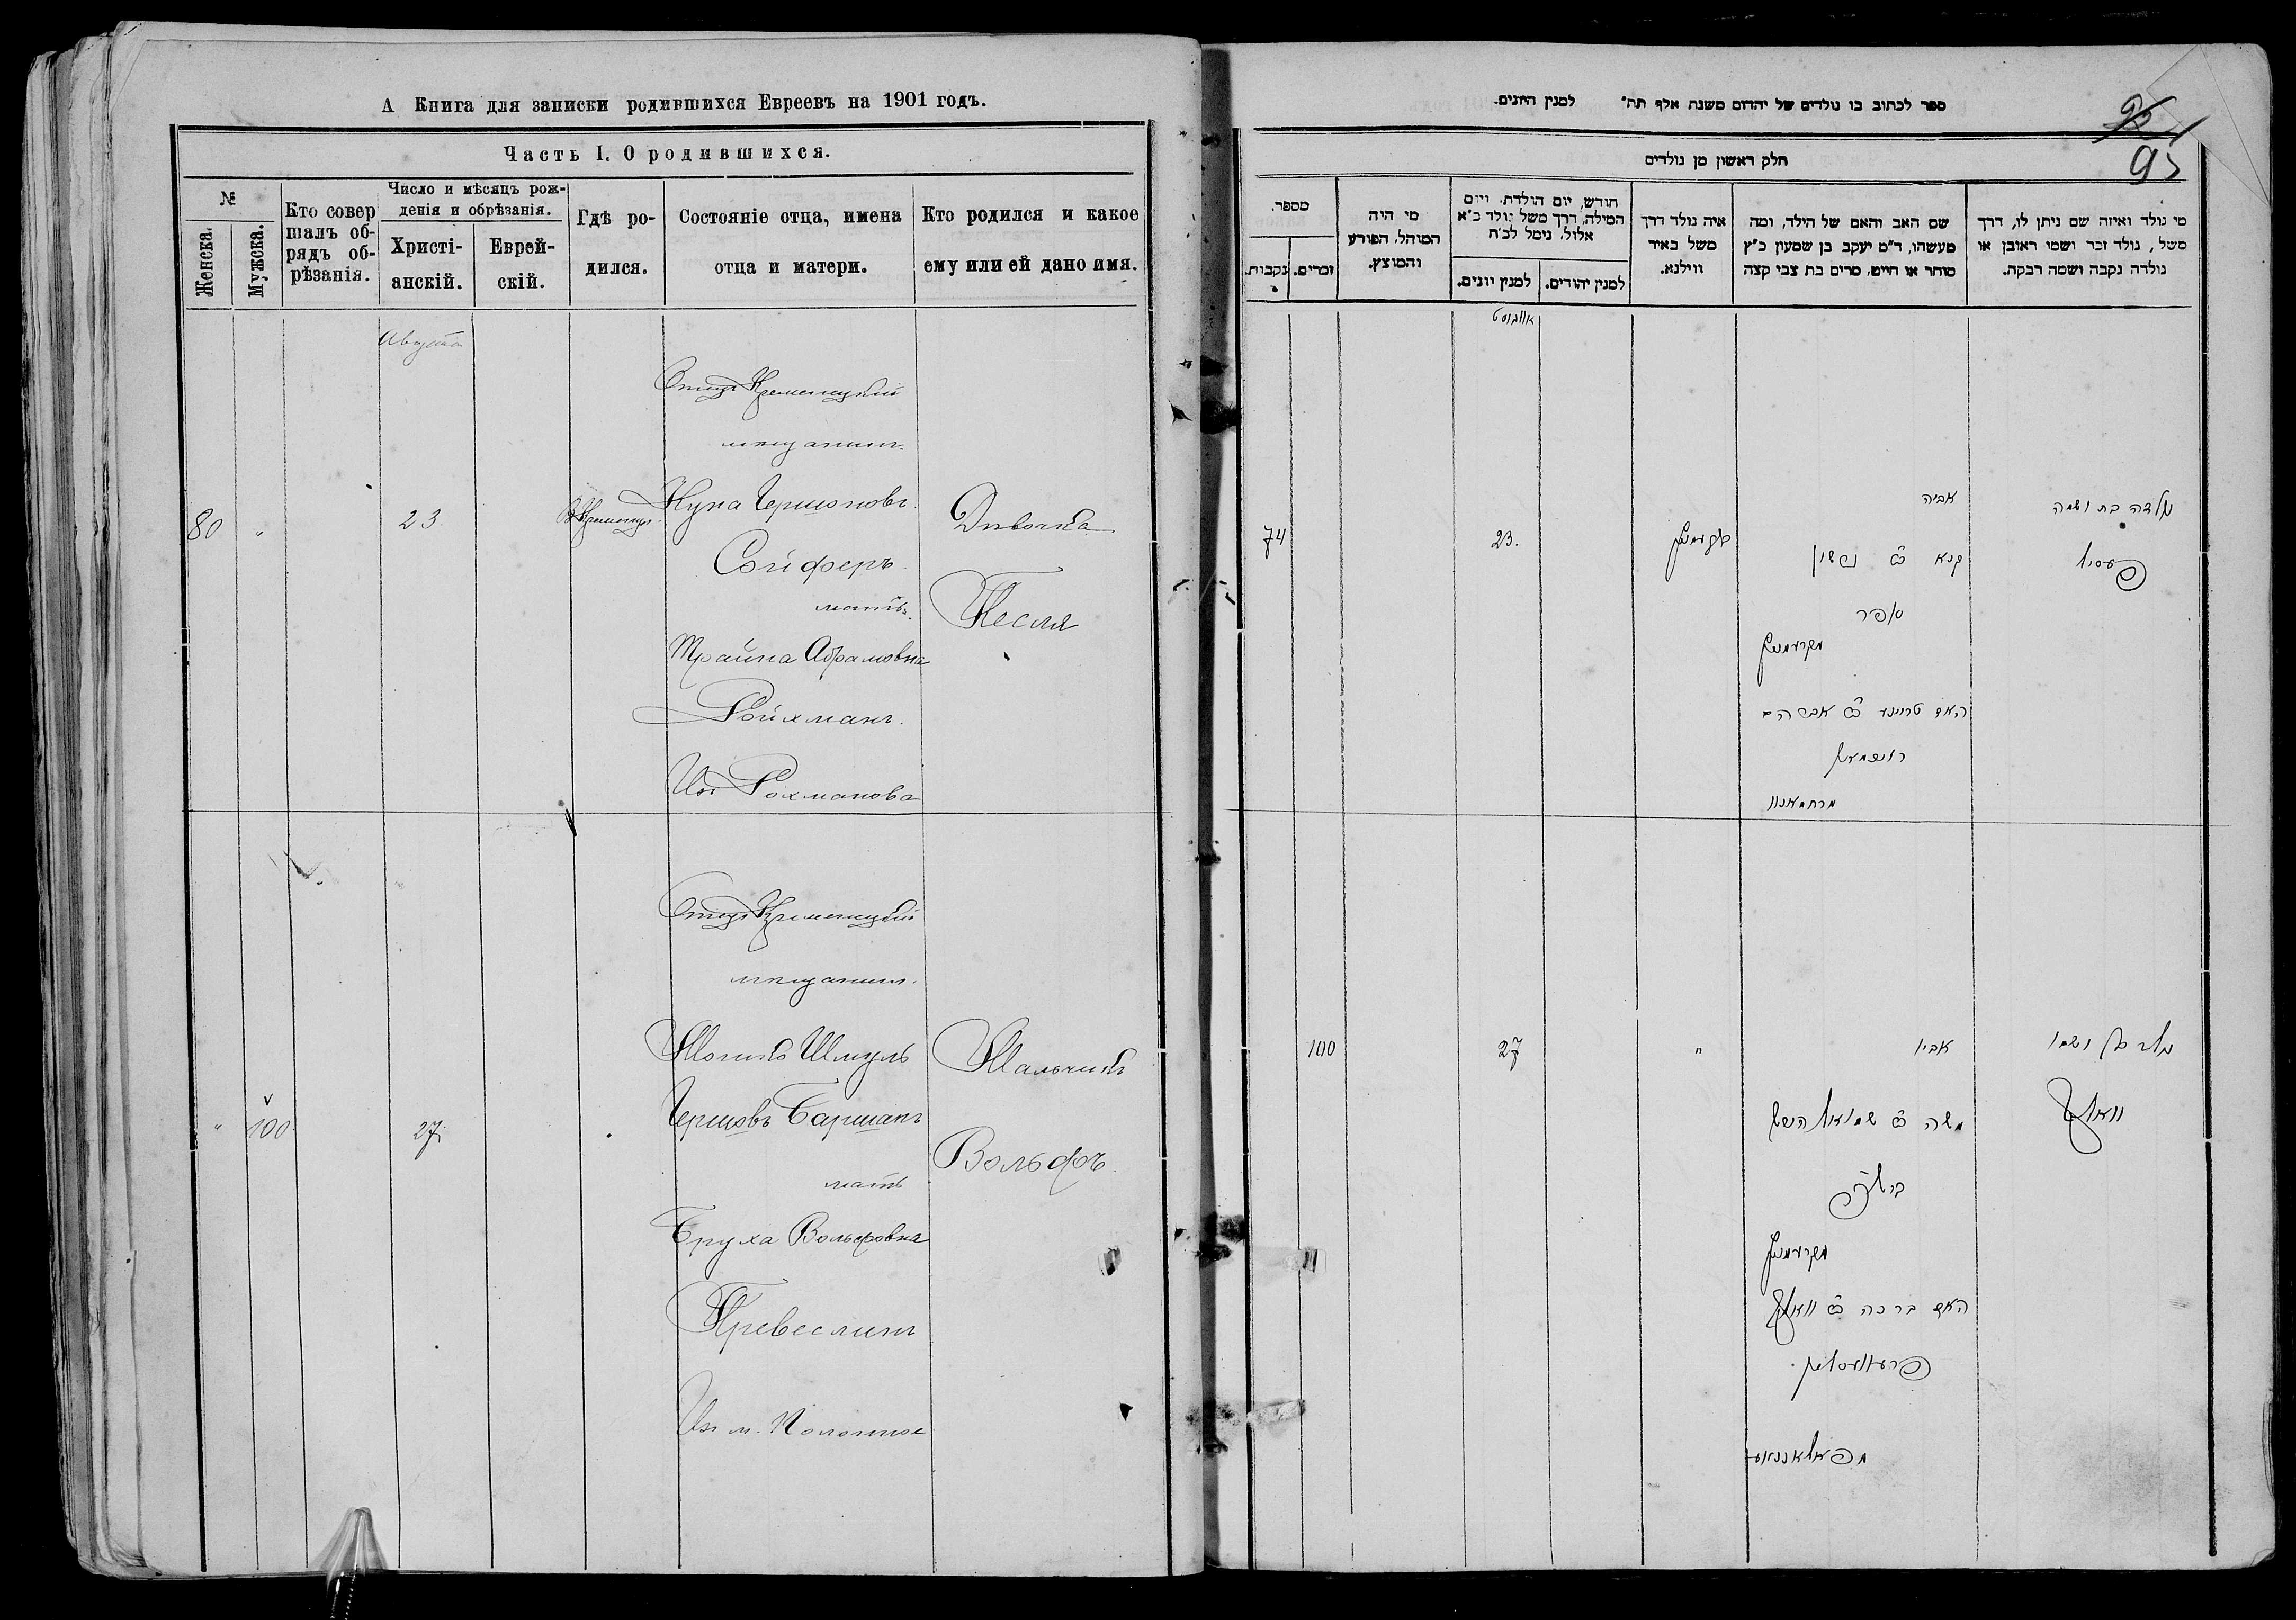 А Книга для записки родившихся Евреевъ на 1901 годъ.
Часть I. О родившихся.
№
Женска.
Мужска.
Кто совер
шалъ об-
рядъ об-
рѣзанія.
Число и мѣсяцъ рож-
денія и обрѣзанія.
Христі-
анскій.
Еврей-
скій.
Гдѣ ро-
дился.
Состояніе отца, имена
отца и матери.
Кто родился и какое
ему или ей дано имя.
Августа
80 "
23
В Кременцѣ
Отецъ Кременецкій
мѣщанинъ
Нуна Гершоновъ
Сойферъ
мать
Трайна Абрамовна
Ройхманъ
Изъ Рохманова
Дѣвочка
Песля
" 100
27
Отецъ Кременецкій
мѣщанинъ
Мошко Шмуль
Гершовъ Баршакъ
мать
Бруха Вольфовна
Превеслинъ
Из м. Полонное
Мальчикъ
Вольфъ
ספר לכתוב בו נולדים של יהדום משנת אלף תת" למנין החנים.
95
95
חלק ראשון מן נולדים
מספר.
נקבות.
זכרים.
מי היה
המוהל, הפורע
והמוצץ.
חודש, יום הולדת, ויום
המילה, דרך משל נולד כ"א
אלול, נימל לכ"ח
למנין יונים.
למנין יהודים.
איה נולד דרך
משל באיר
ווילנא.
שם האב והאם של הילד, ומה
מעשהו, ד"מ יעקב בן שמעון כ"ץ
סוחר או חייט, מרים בת צבי קצה
מי נולד ואיזה שם ניתן לו, דרך
משל, נולד זכר ושמו ראובן או
נולדה נקבה ושמה רבקה.
אווגוסט
74
23.
בקרעמניץ
אביה
סופר
מקרעמניץ
האם טריינע ב"ר אברהם
רייכמאן
מרחמאנוו
נולדה בת ושמה
פעסיל
100
27
"
אביו
משה ב"ר שמואל הירש
ברש"ק
מקרעמניץ
האם ברכה ב"ר וואלף
פרעוועסלין
מפאלאננאע
נולד בן ושמו
וואלף